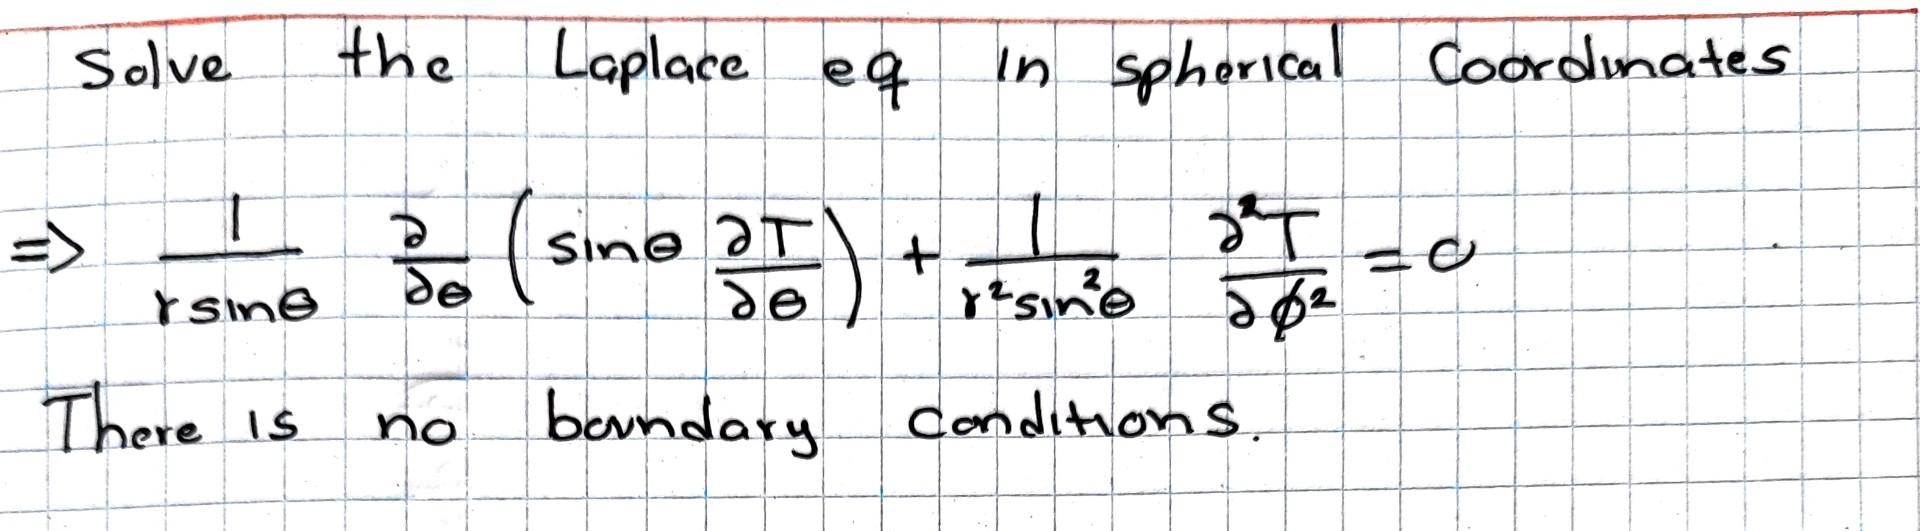 Solve the Laplace eq in spherical Coordinates
=> 1/(r sinθ) ∂/∂θ (sinθ ∂T/∂θ) + 1/(r² sin²θ) ∂²T/∂ϕ² = 0
There is no boundary conditions.